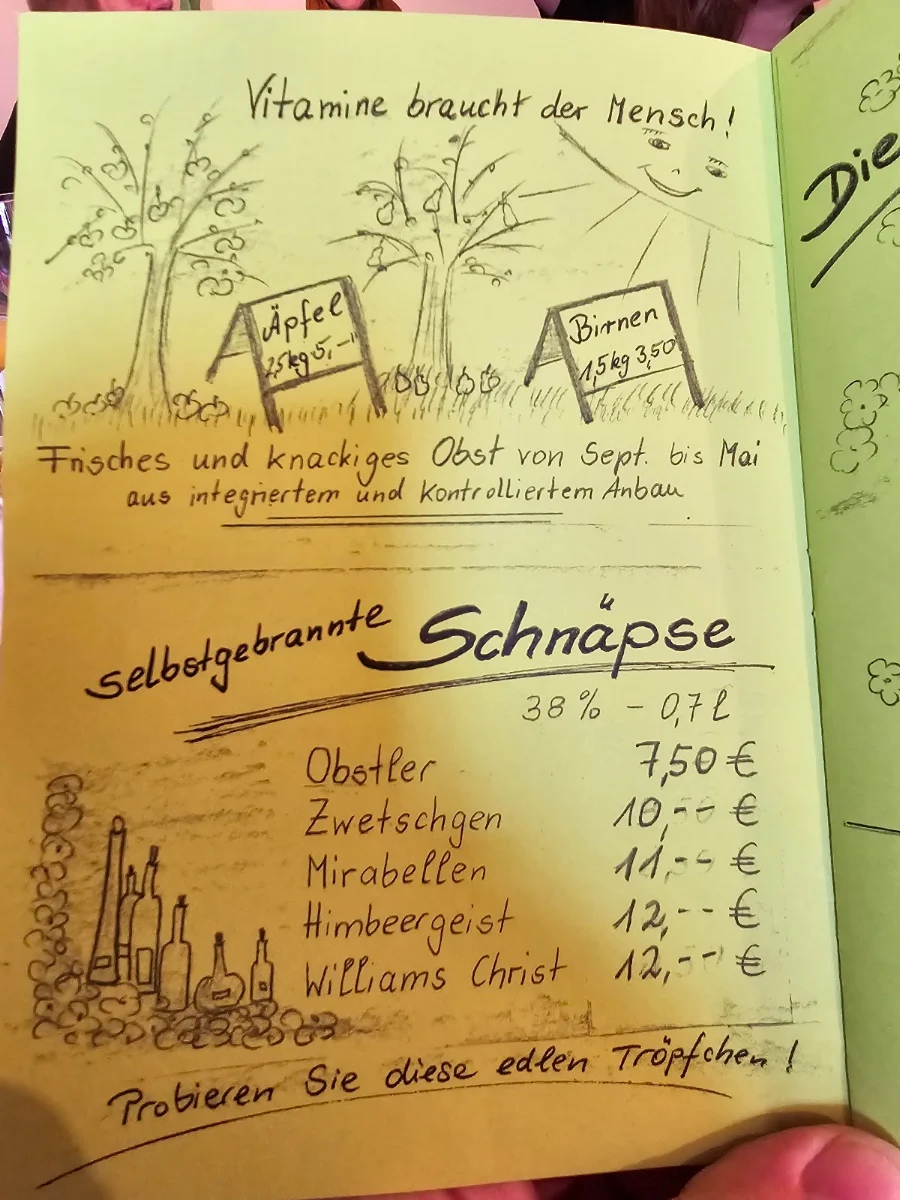 Vitamine braucht der Mensch!
Äpfel
2,5kg 5,--
Birnen
1,5kg 3,50
Frisches und knackiges Obst von Sept. bis Mai
aus integriertem und kontrolliertem Anbau
Selbstgebrannte Schnäpse
38% - 0,7l
Obstler 7,50 €
Zwetschgen 10,-- €
Mirabellen 11,-- €
Himbeergeist 12,-- €
Williams Christ 12,-- €
Probieren Sie diese edlen Tröpfchen!
Die